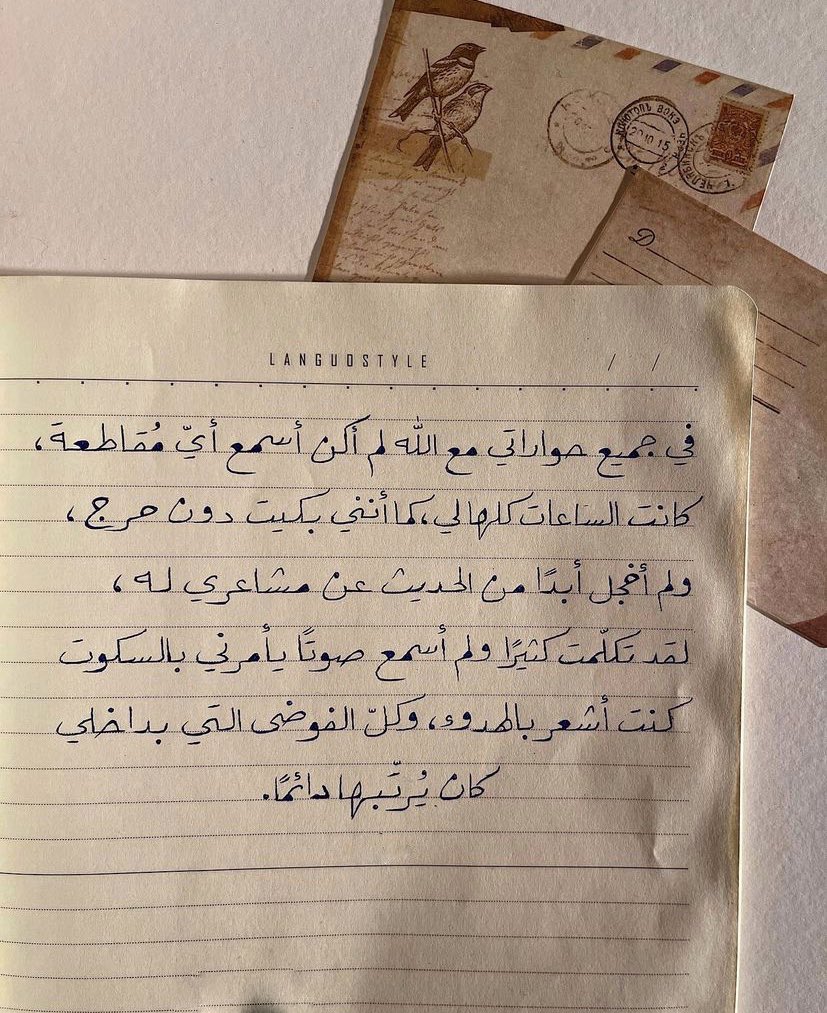 КОНОТОПЪ ВОКЗ.
20 10 15
ЧЕЛЯБИНСКЪ
D
LANGUOSTYLE / /
في جميع حواراتي مع الله لم أكن أسمع أيّ مُقاطعة،
كانت الساعات كلها لي، كما أنني بكيت دون حرج،
ولم أخجل أبدًا من الحديث عن مشاعري له،
لقد تكلّمت كثيرًا ولم أسمع صوتًا يأمرني بالسكوت
كنت أشعر بالهدوء، وكلّ الفوضى التي بداخلي
كان يُرتّبها دائمًا.